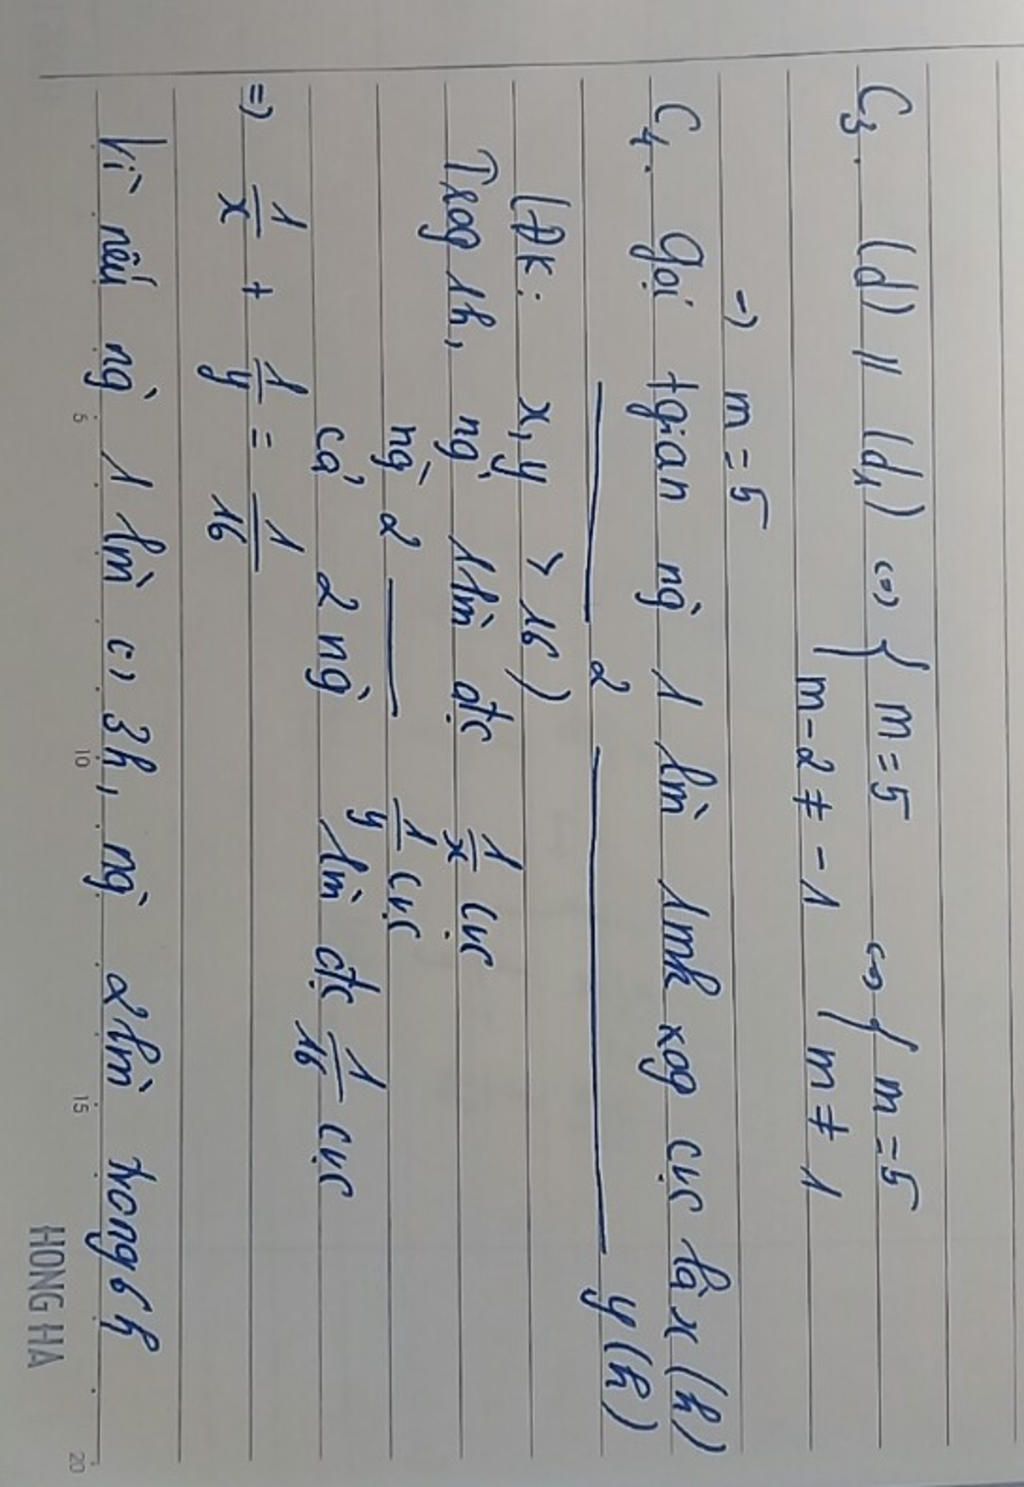 C3. (d) // (d1) <=> { m = 5 <=> { m = 5
m - 2 ≠ -1 m ≠ 1
-> m = 5
C4. Gọi tgian ng` 1 lm` 1mh xog cvc là x (h)
——— 2 ——— y (h)
(ĐK: x, y > 16)
Trog 1h, ng` 1 lm` đtc 1/x cvc
ng` 2 —— 1/y cvc
cả 2 ng` lm` đtc 1/16 cvc
=> 1/x + 1/y = 1/16
Vì nếu ng` 1 lm` 3h, ng` 2 lm` trong 6h
5 10 15 20
HONG HA